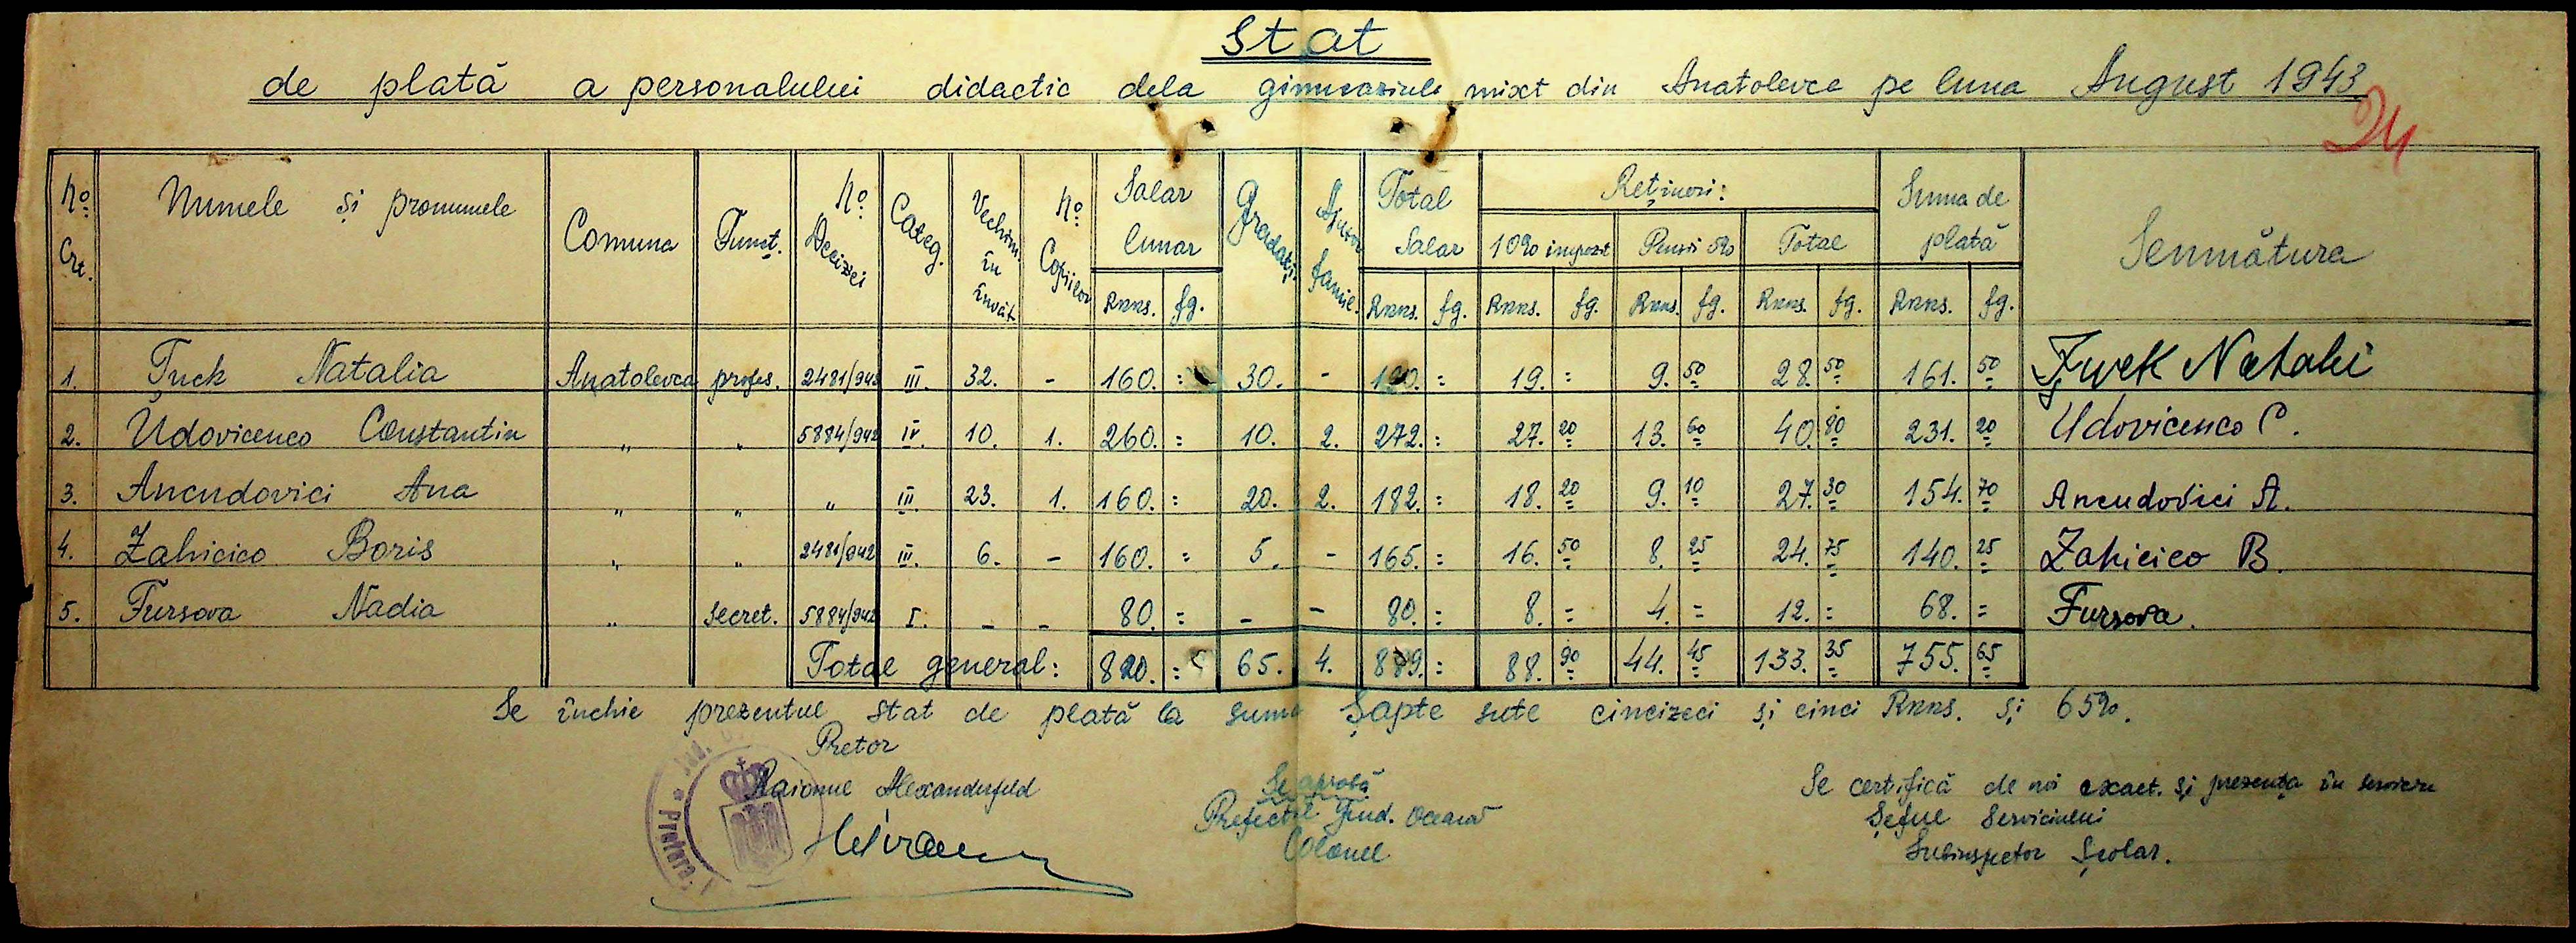 Stat
de plată a personalului didactic dela gimnaziule mixt din Anatolevca pe luna August 1943
24
No Crt. Numele și pronumele Comuna Funcț. No Decizei Categ. Vechim. în învăț. No Copiilor Salar lunar Gradați. Ajutor famil. Total Salar Rețineri: Suma de plată Semnătura
10% impozit Pensii 5% Total
Rkks. fg. Rkks. fg. Rkks. fg. Rkks. fg. Rkks. fg. Rkks. fg.
1. Țuck Natalia Anatolevca profes. 2481/942 III. 32. - 160. = 30. - 190. = 19. = 9. 50 28. 50 161. 50 Țuck Natalii
2. Udovicenco Constantin " " 5884/942 IV. 10. 1. 260. = 10. 2. 272. = 27. 20 13. 60 40. 80 231. 20 Udovicenco C.
3. Ancudovici Ana " " " III 23. 1. 160. = 20. 2. 182. = 18. 20 9. 10 27. 30 154. 70 Ancudovici A.
4. Zahicico Boris " " 2481/942 III. 6. - 160. = 5. - 165. = 16. 50 8. 25 24. 75 140. 25 Zahicico B.
5. Fursova Nadia " secret. 5884/942 I. - - 80. = - - 80. = 8. = 4. = 12. = 68. = Fursova.
Total general: 820. = 65. 4. 889. = 88. 90 44. 45 133. 35 755. 65
Se închie prezentul stat de plată la suma Șapte sute cincizeci și cinci Rkks. și 65%.
Pretor
Raionul Alexanderfeld
Se aprobă
Prefectul Jud. Oceacov
Colonel
Se certifică de noi exact. și prezența în serviciu
Șeful Serviciului
Subinspector Școlar.
Jud.
Pretura